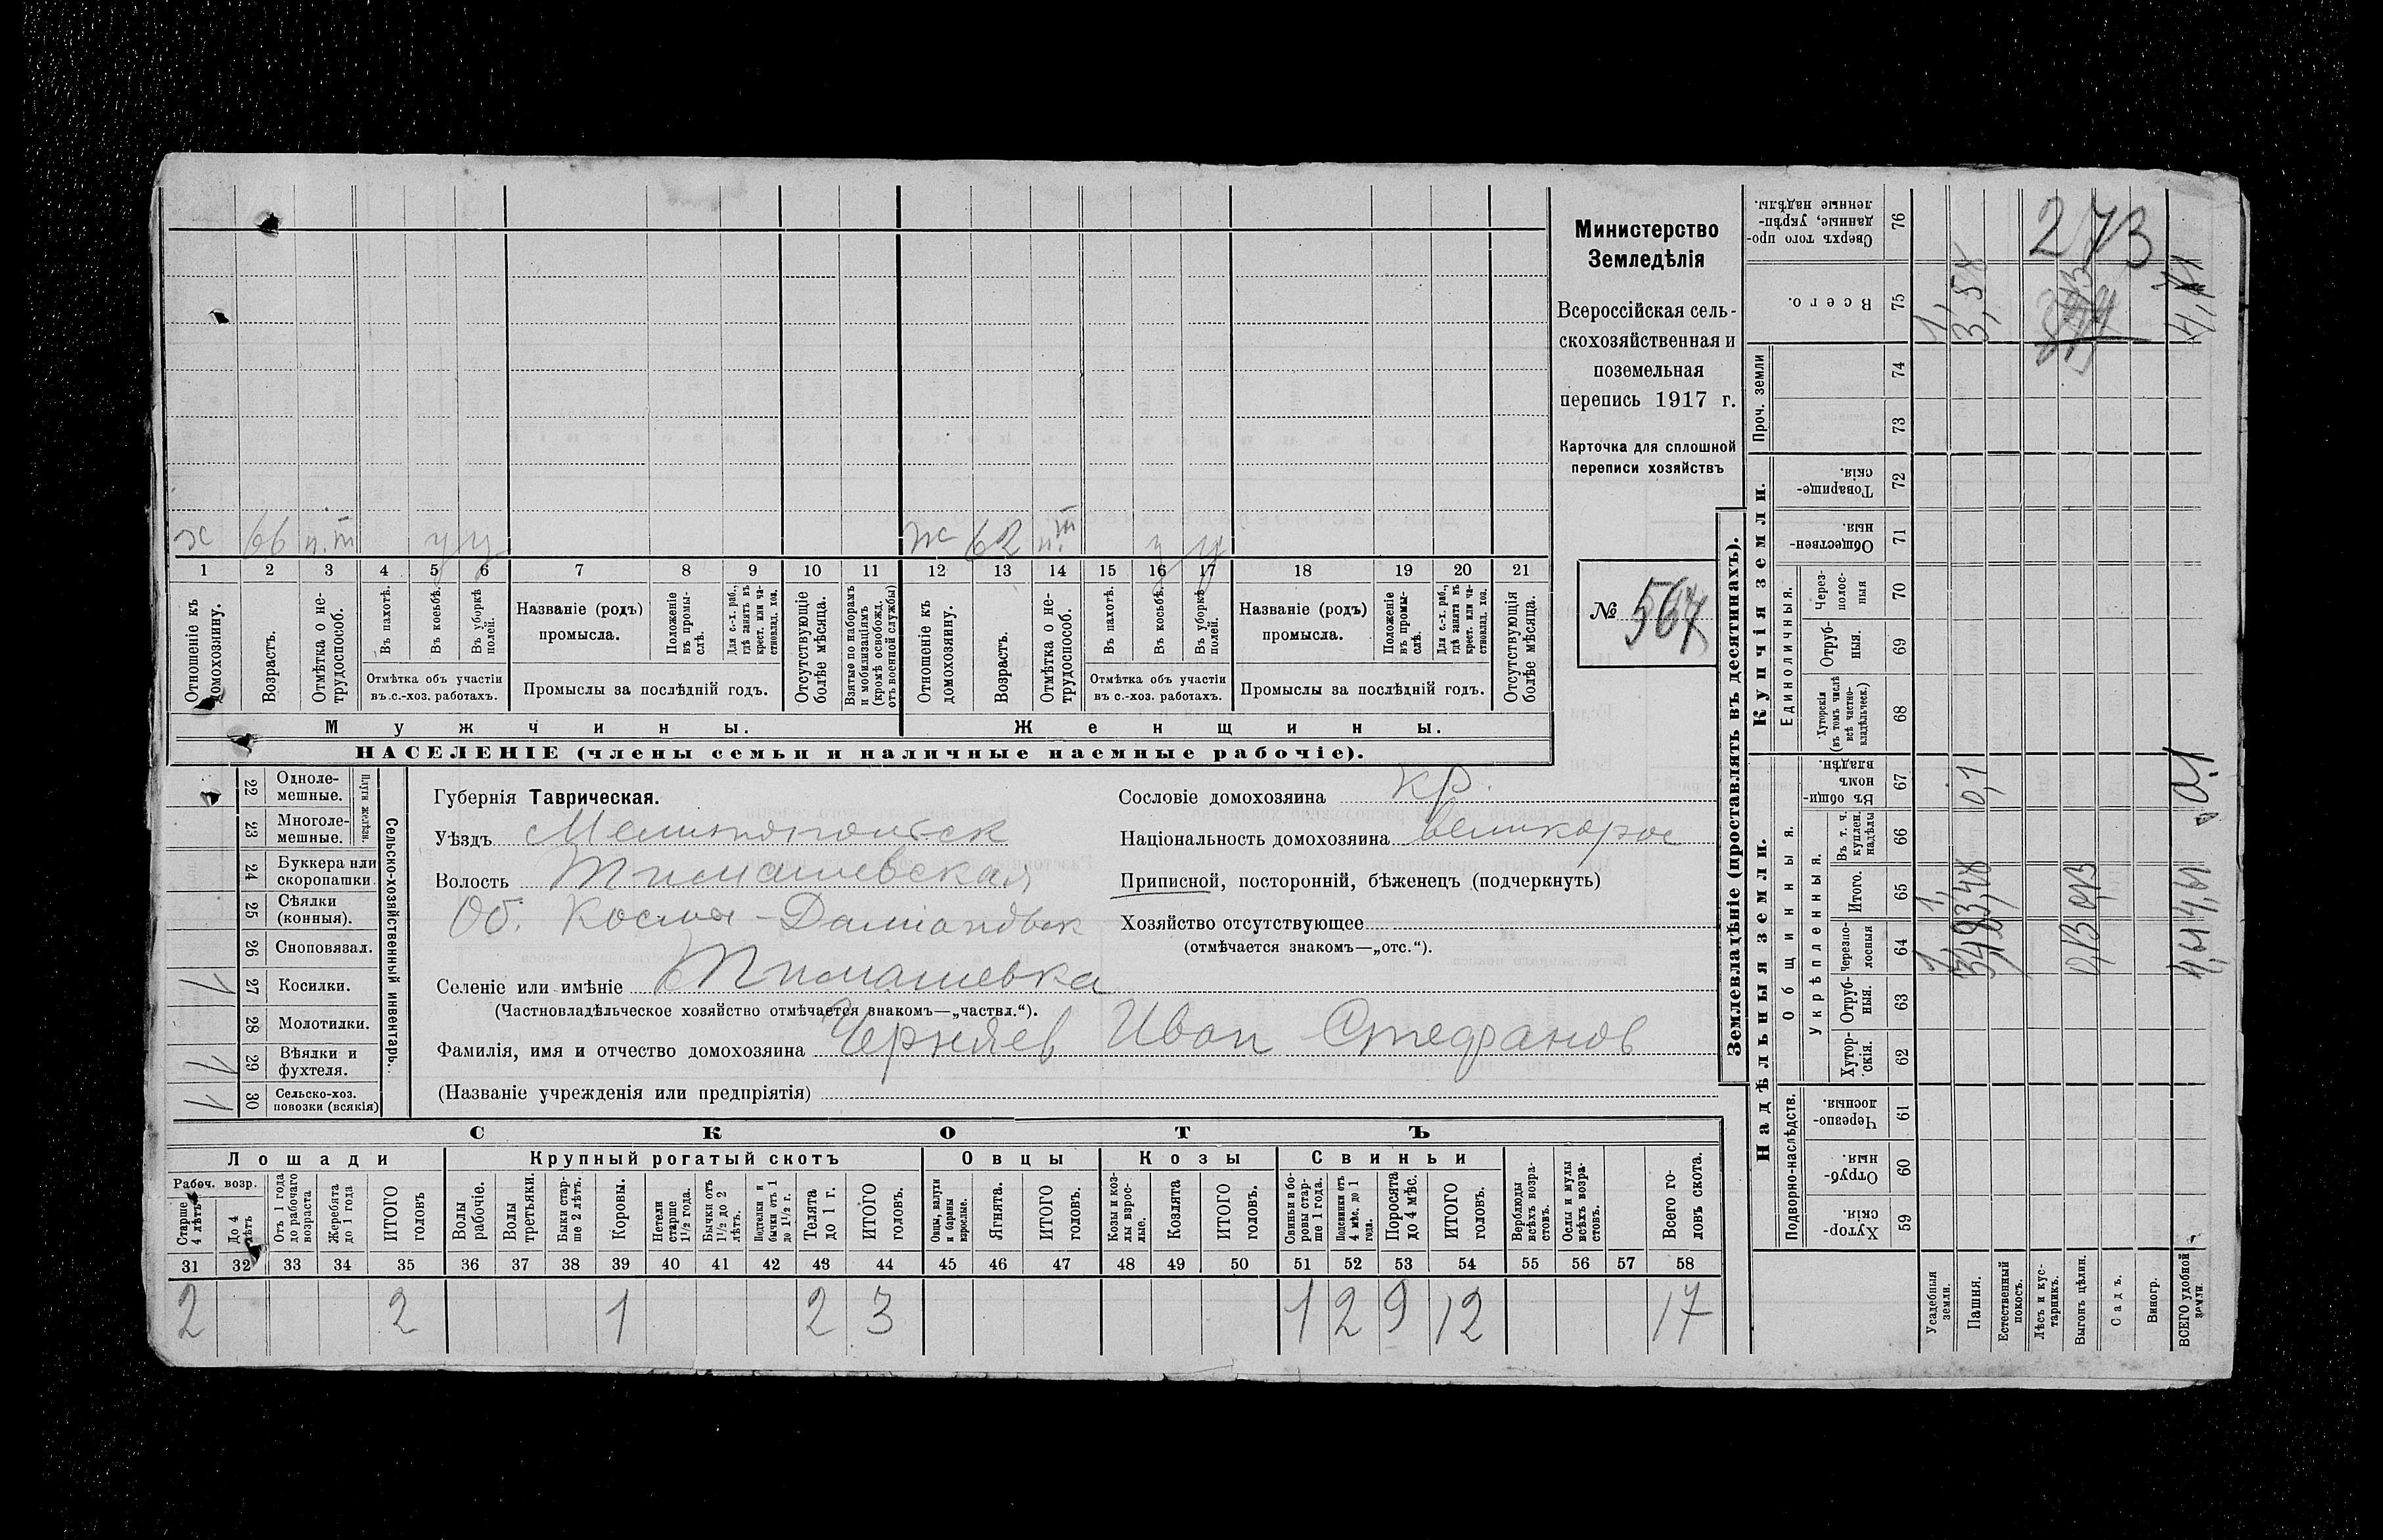 Министерство
Земледѣлія
Всероссійская сель-
скохозяйственная и
поземельная
перепись 1917 г.
Карточка для сплошной
переписи хозяйствъ
№ 567
ж 66 н.т у у
ж 62 н.т у у
1 2 3 4 5 6 7 8 9 10 11 12 13 14 15 16 17 18 19 20 21
Отношеніе къ домохозяину.
Возрастъ.
Отмѣтка о не-трудоспособ.
Въ пахотѣ.
Въ косьбѣ.
Въ уборкѣ полей.
Отмѣтка объ участіи
въ с.-хоз. работахъ.
Названіе (родъ)
промысла.
Положеніе въ промы-слѣ.
Для с.-х. раб., гдѣ занятъ въ крест. или ча-стновлад. хоз.
Промыслы за послѣдній годъ.
Отсутствующіе болѣе мѣсяца.
Взятые по наборамъ и мобилизаціямъ (кромѣ освобожд. отъ военной службы)
Отношеніе къ домохозяину.
Возрастъ.
Отмѣтка о не-трудоспособ.
Въ пахотѣ.
Въ косьбѣ.
Въ уборкѣ полей.
Отмѣтка объ участіи
въ с.-хоз. работахъ.
Названіе (родъ)
промысла.
Положеніе въ промы-слѣ.
Для с.-х. раб., гдѣ занята въ крест. или ча-стновлад. хоз.
Промыслы за послѣдній годъ.
Отсутствующія болѣе мѣсяца.
Мужчины.
Женщины.
НАСЕЛЕНІЕ (члены семьи и наличные наемные рабочіе).
22 Одноле-мешные.
23 Многоле-мешные.
Плуги желѣзн.
24 Буккера или скоропашки
25 Сѣялки (конныя).
26 Сноповязал.
27 Косилки.
28 Молотилки.
29 Вѣялки и фухтеля.
30 Сельско-хоз. повозки (всякія)
Сельско-хозяйственный инвентарь.
Губернія Таврическая.
Уѣздъ Мелитопольск
Волость Тимашевская
Об. Косма-Даміановск
Селеніе или имѣніе Тимашевка
(Частновладѣльческое хозяйство отмѣчается знакомъ—„частвл.“).
Фамилія, имя и отчество домохозяина Черняев Иван Стефанов
(Названіе учрежденія или предпріятія)
Сословіе домохозяина кр.
Національность домохозяина великорос
Приписной, посторонній, бѣженецъ (подчеркнуть)
Хозяйство отсутствующее
(отмѣчается знакомъ—„отс.“).
СКОТЪ
Лошади
Крупный рогатый скотъ
Овцы
Козы
Свиньи
Рабоч. возр.
Старше 4 лѣтъ
До 4 лѣтъ
Отъ 1 года до рабочаго возраста
Жеребята до 1 года
ИТОГО головъ
Волы рабочіе.
Волы третьяки.
Быки стар-ше 2 лѣтъ.
Коровы.
Нетели старше 1½ года.
Бычки отъ 1½ до 2 лѣтъ.
Подтелки и бычки отъ 1 до 1½ г.
Телята до 1 г.
ИТОГО головъ.
Овцы, валухи и бараны взрослые.
Ягнята.
ИТОГО головъ.
Козы и коз-лы взрос-лые.
Козлята
ИТОГО головъ.
Свиньи и бо-ровы стар-ше 1 года.
Подсвинки отъ 4 мѣс. до 1 года.
Поросята до 4 мѣс.
ИТОГО головъ.
Верблюды всѣхъ возра-стовъ.
Ослы и мулы всѣхъ возра-стовъ.
Всего го-ловъ скота.
31 32 33 34 35 36 37 38 39 40 41 42 43 44 45 46 47 48 49 50 51 52 53 54 55 56 57 58
2 2 1 2 3 1 2 9 12 17
Землевладѣніе (проставлять въ десятинахъ).
Надѣльныя земли.
Купчія земли.
Проч. земли
Подворно-наслѣдств.
Общинныя.
Укрѣпленныя.
Единоличныя.
59 Хутор-скія.
60 Отруб-ныя.
61 Черезпо-лосныя.
62 Хутор-скія.
63 Отруб-ныя.
64 Черезпо-лосныя
65 Итого.
66 Въ т. ч. куплен. надѣлы
67 Въ общи-номъ владѣн.
68 Хуторскія (въ томъ числѣ всѣ частно-владѣльческ.)
69 Отруб-ныя.
70 Через-полос-ныя
71 Обществен-ныя.
72 Товарище-скія.
73
74
75 Всего.
76 Сверхъ того про-данные, укрѣп-ленные надѣлы.
Усадебныя земли.
1, 1, 1,
Пашня.
3,48 3,48 0,1 3,58
Естественный покосъ.
Лѣсъ и кус-тарникъ.
Выгонъ цѣлин.
Садъ.
Виногр.
ВСЕГО удобной земли.
273